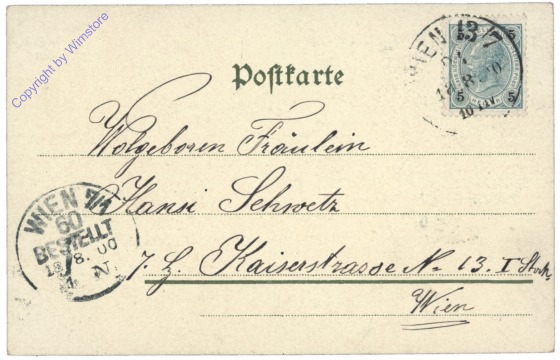 Copyright by Wimstore
Postkarte
WIEN 13/7
5 5
5 5
Wolgeboren Fräulein
Hansi Schwetz
7. L. Kaiserstrasse No 13. I Stock
Wien
WIEN 7/1
60
BESTELLT
18 8. 00